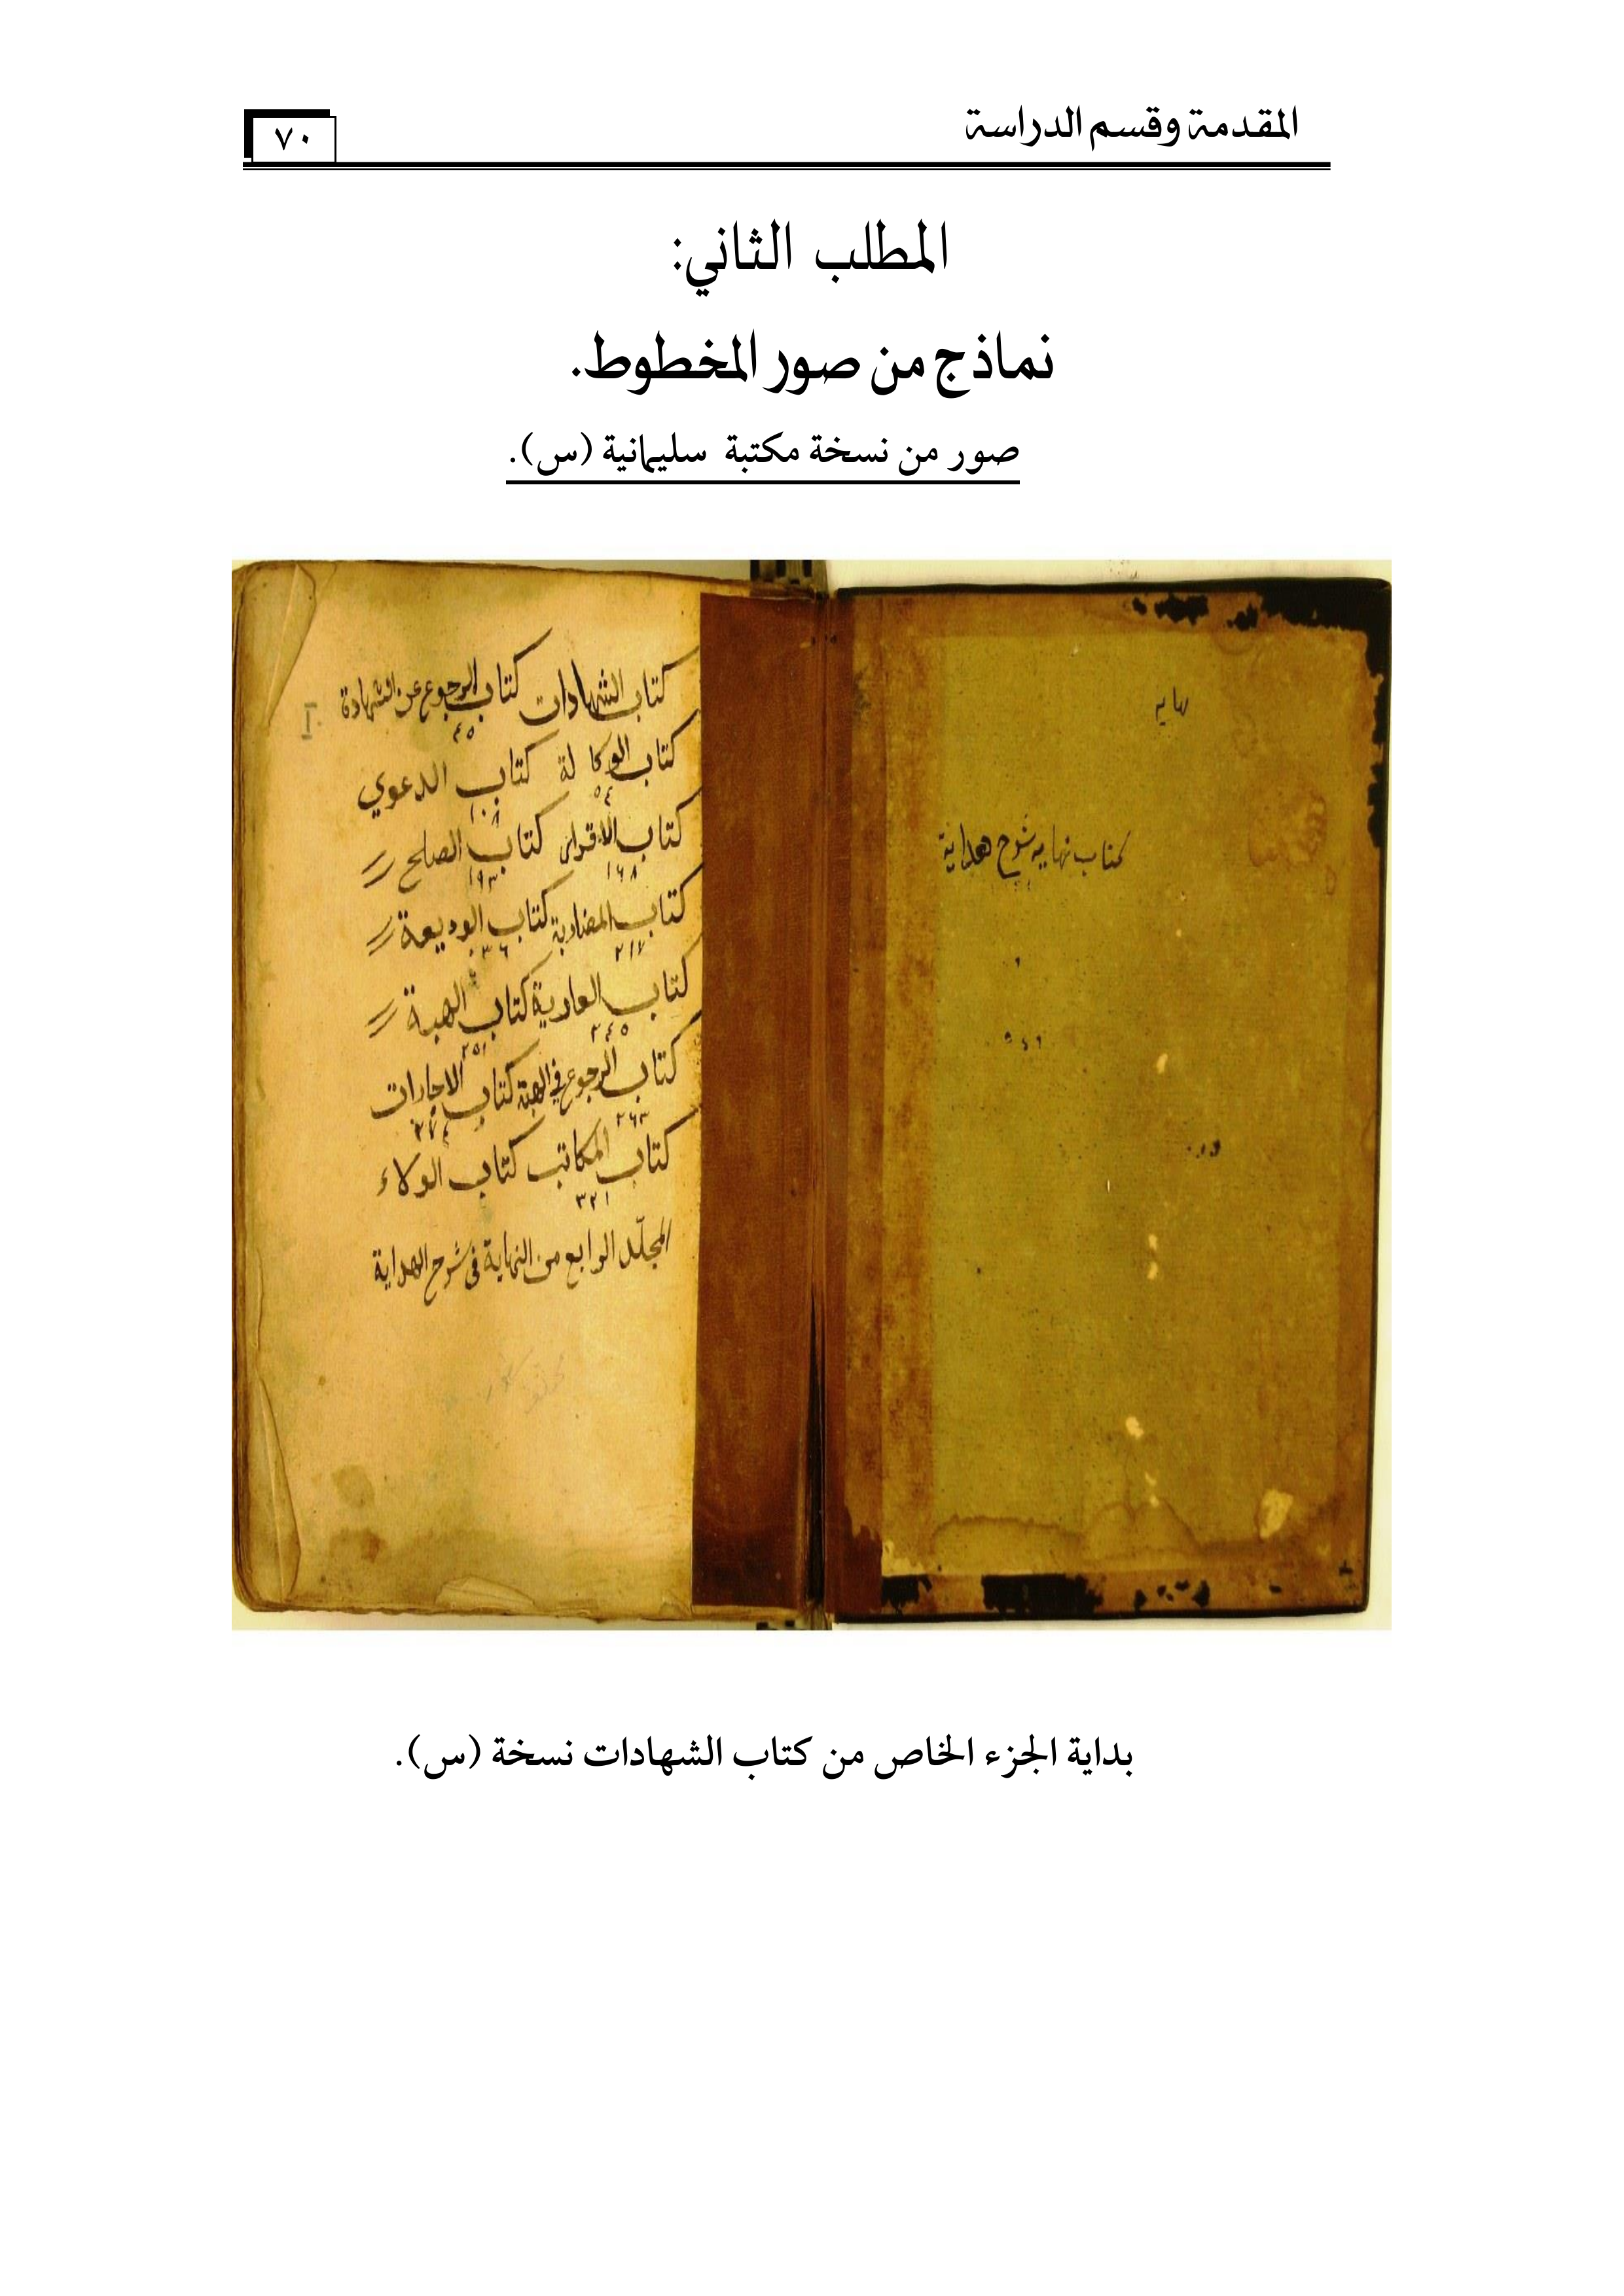 المقدمة وقسم الدراسة
٧٠
المطلب الثاني:
نماذج من صور المخطوط.
صور من نسخة مكتبة سليمانية (س).
كتاب نهايه شرح هداية
كتاب الشهادات كتاب الرجوع عن الشهادة
٤٥
كتاب الوكالة كتاب الدعوي
٥٤ ١٠٨
كتاب الاقرار كتاب الصلح
١٦٨ ١٩٣
كتاب المضاربة كتاب الوديعة
٢١٧
كتاب العارية كتاب الهبة
٢٤٥ ٢٥١
كتاب الرجوع في الهبة كتاب الاجارات
٢٦٣ ٢٧٤
كتاب المكاتب كتاب الولاء
٣٢١
المجلد الرابع من النهاية فى شرح الهداية
بداية الجزء الخاص من كتاب الشهادات نسخة (س).